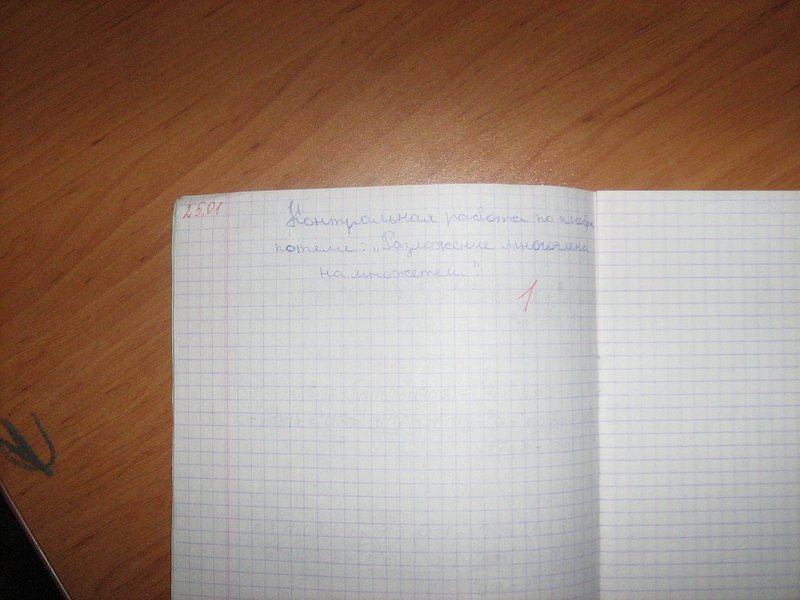 25.01
Контрольная работа по алгебре
по теме: „Разложение многочлена
на множетели".
1